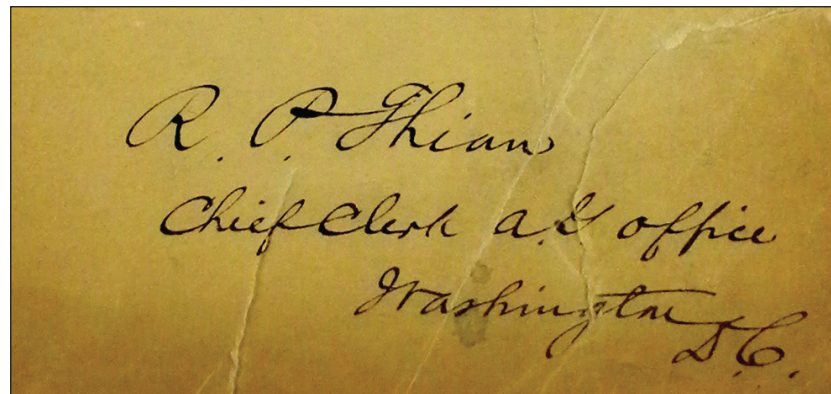 R. P. Thian
Chief Clerk A.G office
Washington
D.C.